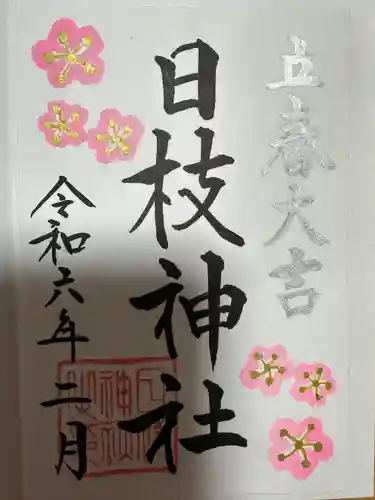 立春大吉
日枝神社
令和六年二月